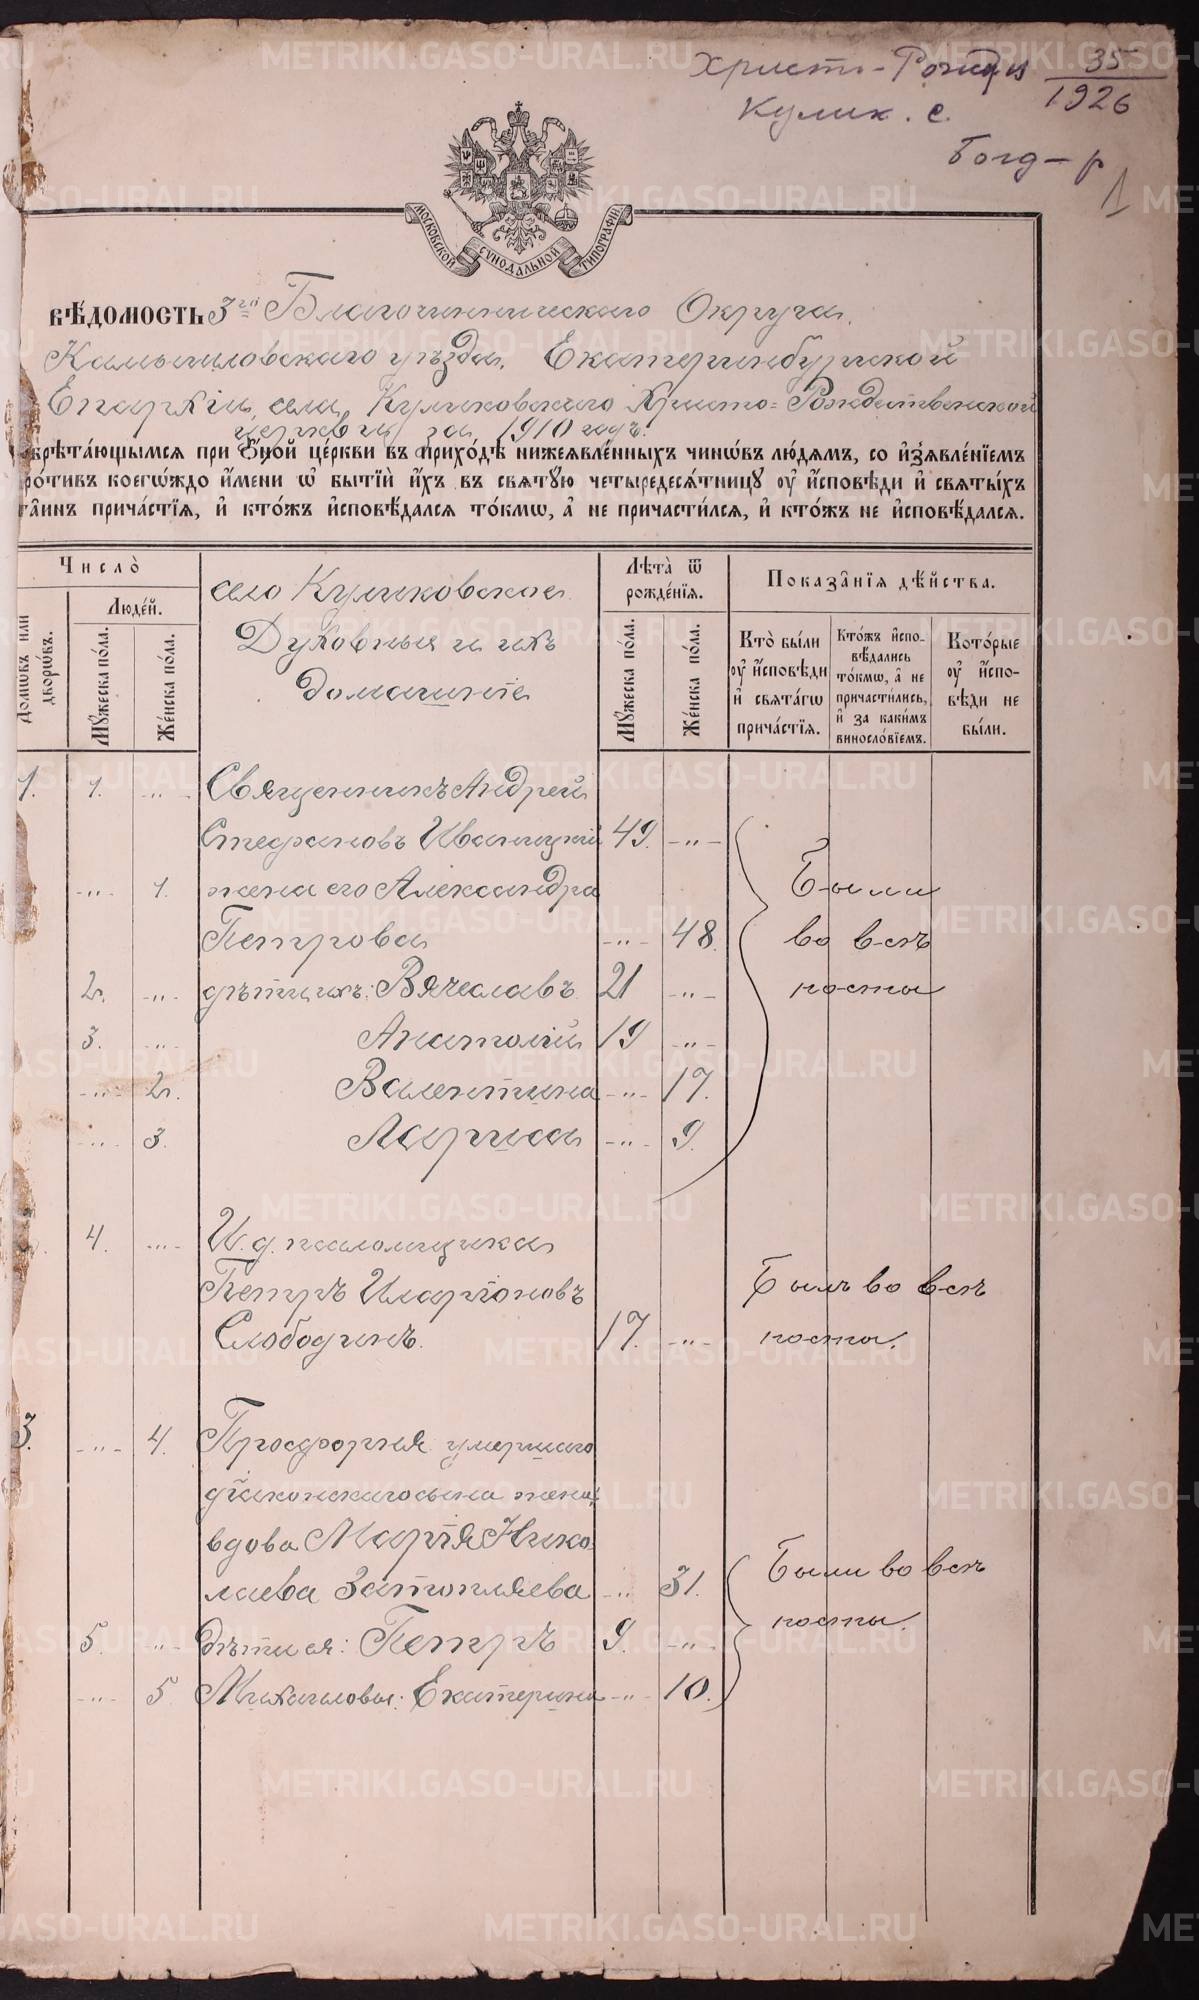 Христо-Рожд ц 35
1926
Кулик. с.
Богд-р
1
МОСКОВСКОЙ СѴНОДАЛЬНОЙ ТИПОГРАФІИ
ВѢДОМОСТЬ 3го Благочинническаго Округа
Камышловскаго уѣзда, Екатеринбургской
Епархіи, села Куликовскаго Христо-Рождественской
церкви за 1910 годъ.
ѡбрѣта́ющымсѧ при Ѻ҆́ной це́ркви въ прихо́дѣ нижеѧвле́нныхъ чинѡ́въ лю́дѧмъ, со и҆з̾ѧвле́нїемъ
про́тивъ коегѡ́ждо и҆́мени ѡ҆ бытїѝ и҆́хъ въ свѧтꙋ́ю четыредесѧ́тницꙋ ᲂу҆ и҆́сповѣди и҆ свѧты́хъ
та̑инъ прича́стїѧ, и҆ кто́жъ и҆сповѣ́далсѧ то́кмѡ, а҆ не причасти́лсѧ, и҆ кто́жъ не и҆сповѣ́далсѧ.
Число̀
Домѡ́въ или дворѡ́въ.
Люде́й.
Мꙋ́жеска по́ла.
Же́нска по́ла.
село Куликовское
Духовныя и ихъ
домашніе
Лѣ́та ѿ рожде́нїѧ.
Мꙋ́жеска по́ла.
Же́нска по́ла.
Показа̑нїѧ дѣ́йства.
Кто̀ бы́ли ᲂу҆ и҆́сповѣди и҆ свѧта́гѡ прича́стїѧ.
Кто́жъ и҆спо-вѣ́дались то́кмѡ, а҆ не причасти́лись, и҆ за каки́мъ виносло́вїемъ.
Кото́рые ᲂу҆ и҆́спо-вѣди не бы́ли.
1. 1. -"- Священникъ Андрей
Стефановъ Иваницкій 49. -"-
-"- 1. жена его Александра Были
Петрова -"- 48. во весь
2. -"- дѣти ихъ: Вячеславъ 21 -"- посты
3. -"- Анатолій 19 -"-
-"- 2. Валентина -"- 17.
-"- 3. Лариса -"- 9.
4. -"- И. д. псаломщика
Петръ Иларіоновъ Былъ во весь
Слободинъ. 17. -"- посты.
3. -"- 4. Просфорня умершаго
діаконскаго сына жена,
вдова Марія Нико-
лаева Затопляева -"- 31. Были во весь
5. -"- дѣти ея: Петръ 9. -"- посты.
-"- 5. Михаиловы: Екатерина -"- 10.
METRIKI.GASO-URAL.RU